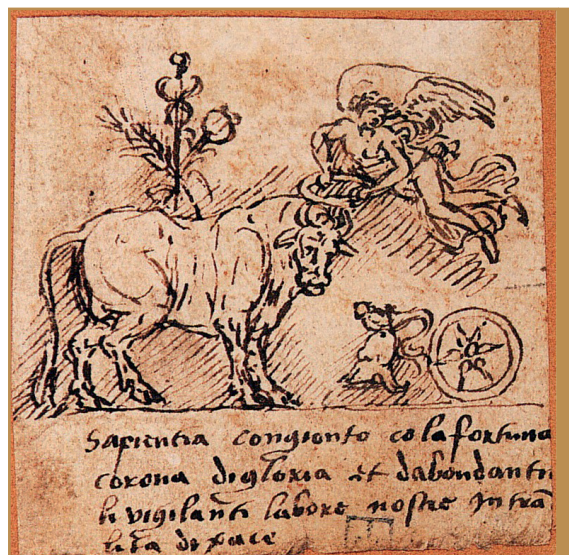 Sapientia congionto co la fortuna
corona di gloria et dabondanti
li vigilanti labore nostre in tra
lita di pace